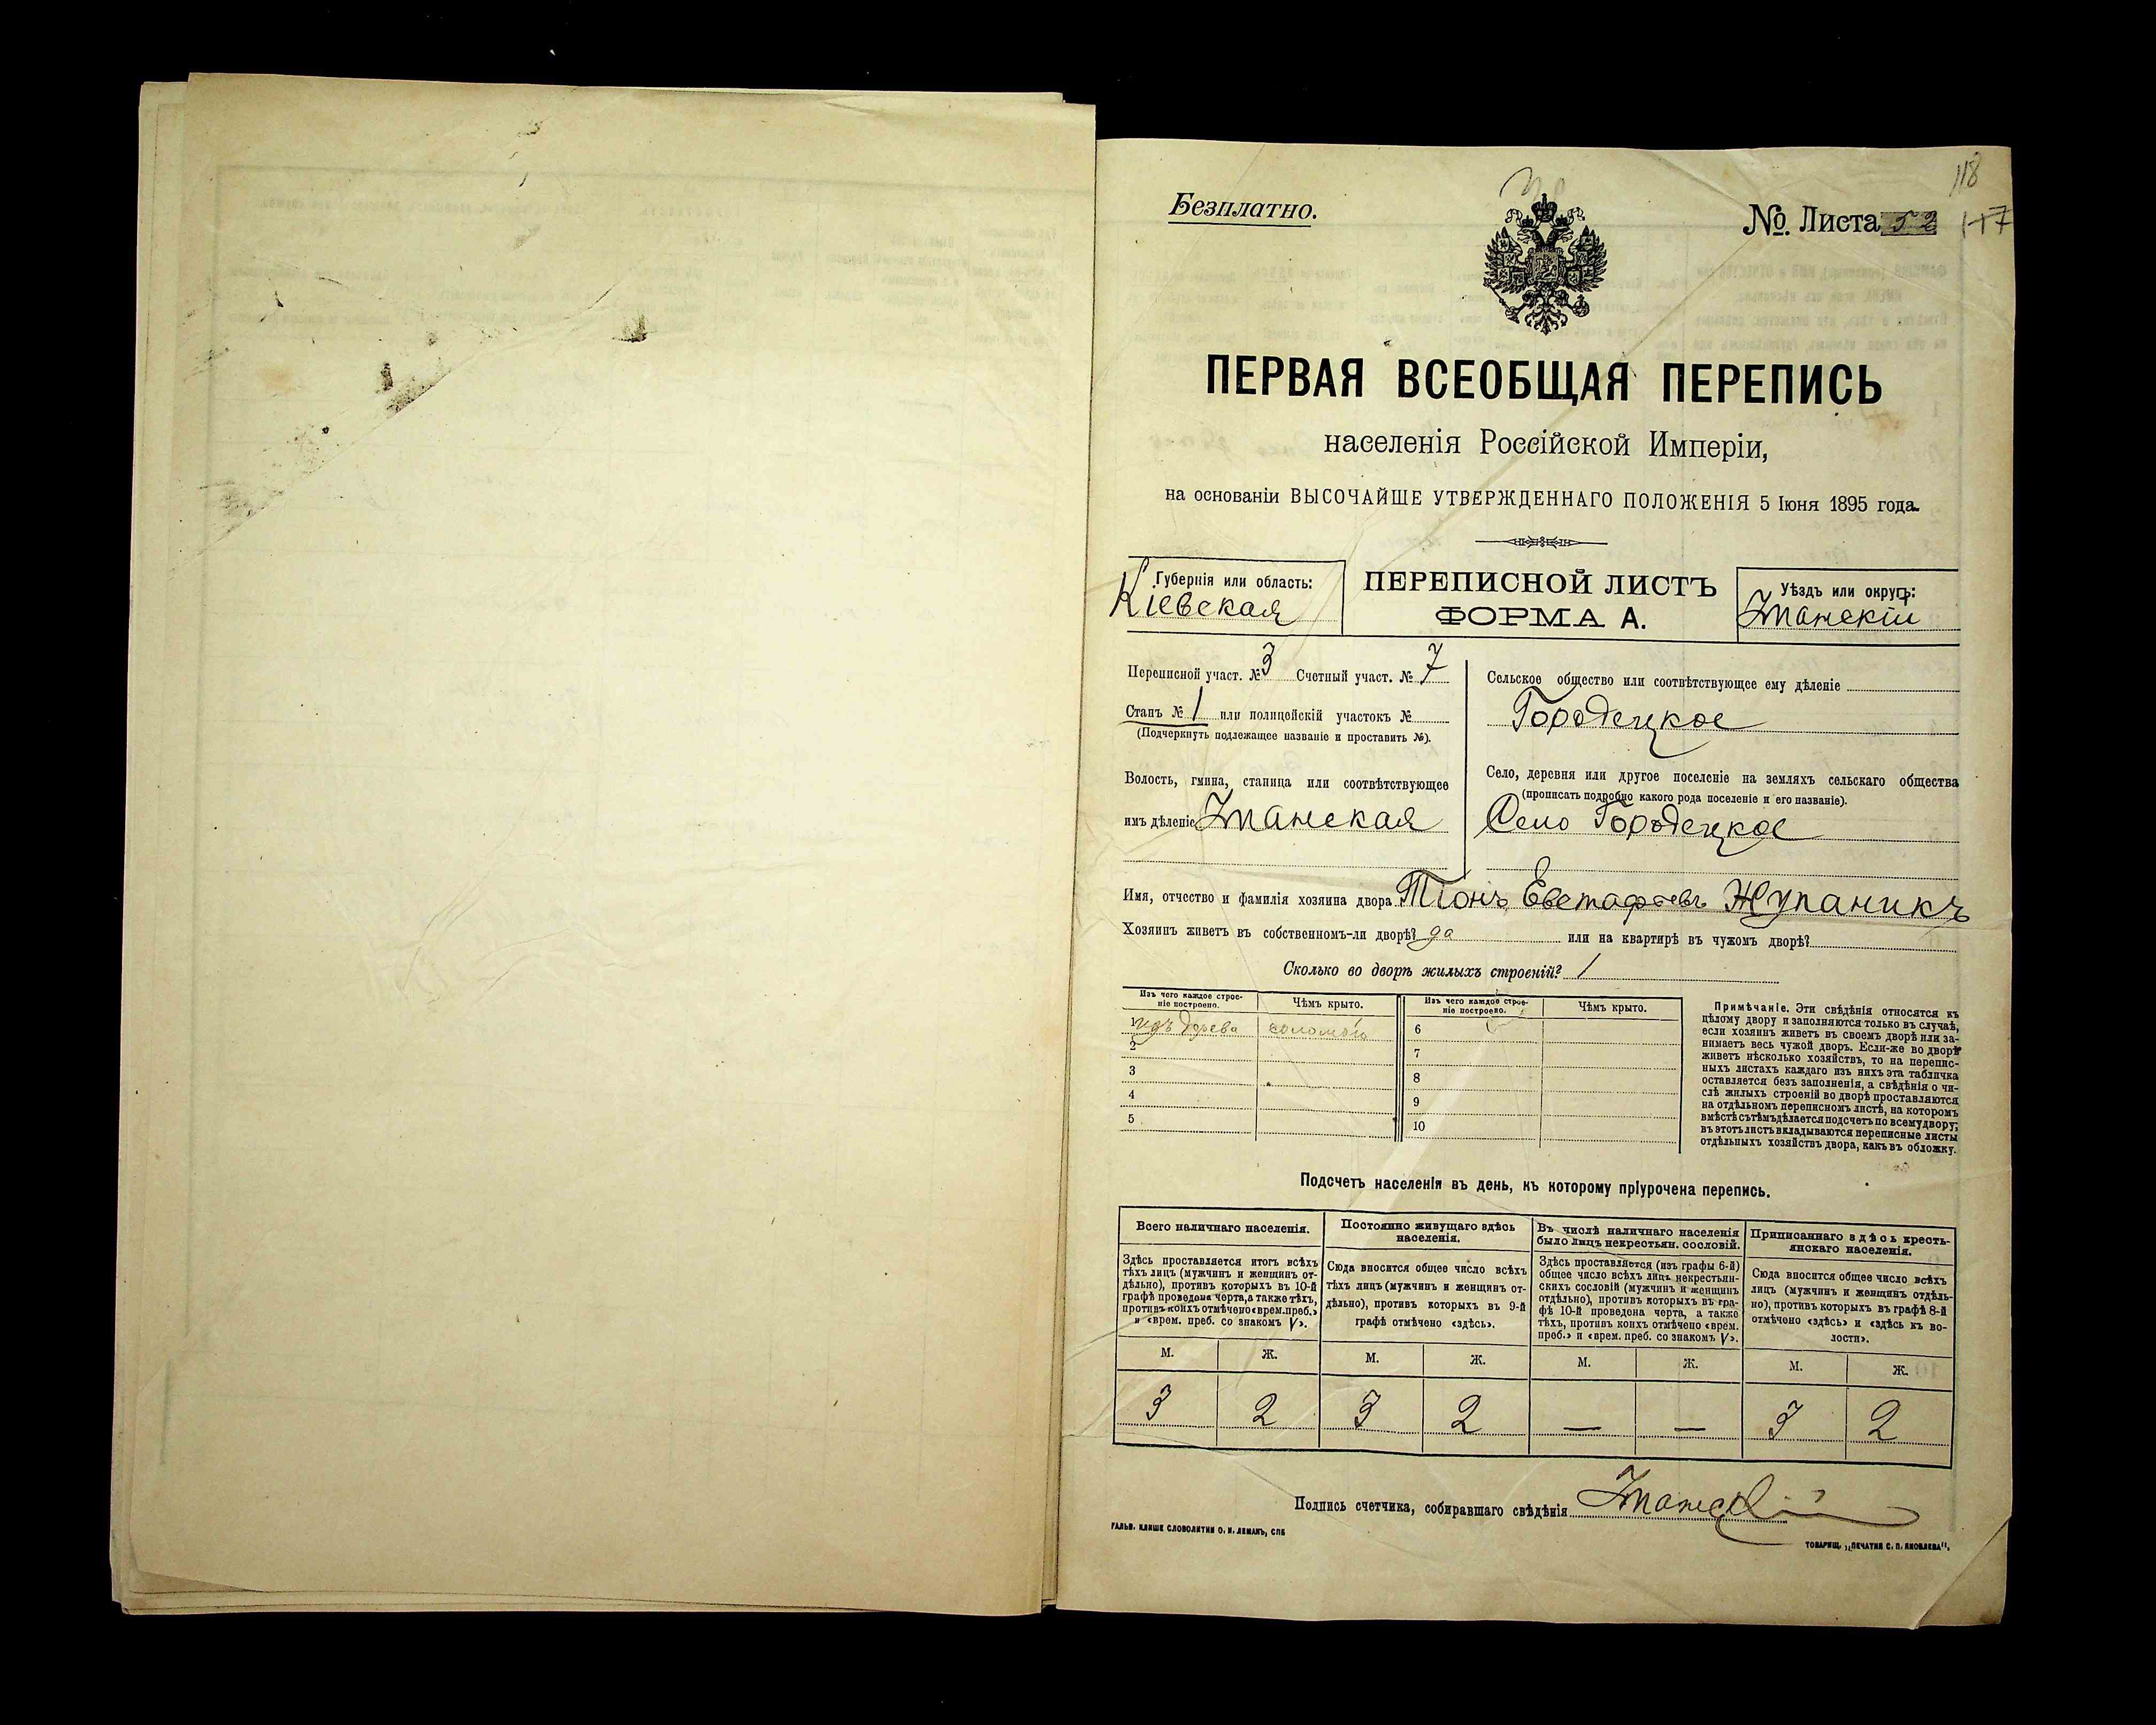 118
Безплатно.
№. Листа 52 117
ПЕРВАЯ ВСЕОБЩАЯ ПЕРЕПИСЬ
населенія Россійской Имперіи,
на основаніи ВЫСОЧАЙШЕ УТВЕРЖДЕННАГО ПОЛОЖЕНІЯ 5 Іюня 1895 года.
Губернія или область:
Кіевская
ПЕРЕПИСНОЙ ЛИСТЪ
ФОРМА А.
Уѣздъ или округъ:
Уманскій
Переписной участ. № 3 Счетный участ. № 7
Станъ № 1 или полицейскій участокъ №
(Подчеркнуть подлежащее названіе и проставить №).
Волость, гмина, станица или соотвѣтствующее
имъ дѣленіе Уманская
Сельское общество или соотвѣтствующее ему дѣленіе
Городецкое
Село, деревня или другое поселеніе на земляхъ сельскаго общества
(прописать подробно какого рода поселеніе и его названіе).
Село Городецкое
Имя, отчество и фамилія хозяина двора Евстафіевъ Жупаникъ
Хозяинъ живетъ въ собственномъ-ли дворѣ? да или на квартирѣ въ чужомъ дворѣ?
Сколько во дворѣ жилыхъ строеній? 1
Изъ чего каждое строе-
ніе построено.
Чѣмъ крыто.
Изъ чего каждое строе-
ніе построено.
Чѣмъ крыто.
1 изъ дерева соломой 6
2 7
3 8
4 9
5 10
Примѣчаніе. Эти свѣдѣнія относятся къ
цѣлому двору и заполняются только въ случаѣ,
если хозяинъ живетъ въ своемъ дворѣ или за-
нимаетъ весь чужой дворъ. Если-же во дворѣ
живетъ нѣсколько хозяйствъ, то на перепис-
ныхъ листахъ каждаго изъ нихъ эта табличка
оставляется безъ заполненія, а свѣдѣнія о чи-
слѣ жилыхъ строеній во дворѣ проставляются
на отдѣльномъ переписномъ листѣ, на которомъ
вмѣстѣ съ тѣмъ дѣлается подсчетъ по всему двору;
въ этотъ листъ вкладываются переписные листы
отдѣльныхъ хозяйствъ двора, какъ въ обложку.
Подсчетъ населенія въ день, къ которому пріурочена перепись.
Всего наличнаго населенія.
Здѣсь проставляется итогъ всѣхъ
тѣхъ лицъ (мужчинъ и женщинъ от-
дѣльно), противъ которыхъ въ 10-й
графѣ проведена черта, а также тѣхъ,
противъ коихъ отмѣчено «врем. преб.»
и «врем. преб. со знакомъ V».
Постоянно живущаго здѣсь
населенія.
Сюда вносится общее число всѣхъ
тѣхъ лицъ (мужчинъ и женщинъ от-
дѣльно), противъ которыхъ въ 9-й
графѣ отмѣчено «здѣсь».
Въ числѣ наличнаго населенія
было лицъ некрестьян. сословій.
Здѣсь проставляется (изъ графы 6-й)
общее число всѣхъ лицъ некрестьян-
скихъ сословій (мужчинъ и женщинъ
отдѣльно), противъ которыхъ въ гра-
фѣ 10-й проведена черта, а также
тѣхъ, противъ коихъ отмѣчено «врем.
преб.» и «врем. преб. со знакомъ V».
Приписаннаго здѣсь кресть-
янскаго населенія.
Сюда вносится общее число всѣхъ
лицъ (мужчинъ и женщинъ отдѣль-
но), противъ которыхъ въ графѣ 8-й
отмѣчено «здѣсь» и «здѣсь къ во-
лости».
М. Ж. М. Ж. М. Ж. М. Ж.
3 2 3 2 — — 3 2
Подпись счетчика, собиравшаго свѣдѣнія
ГАЛЬВ. КЛИШЕ СЛОВОЛИТНИ О. И. ЛЕМАНЪ, СПБ
ТОВАРИЩ. „ПЕЧАТНЯ С. П. ЯКОВЛЕВА".